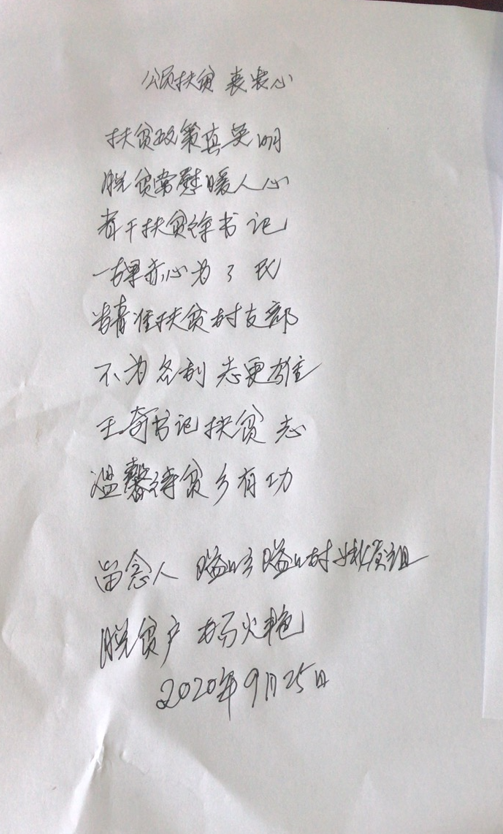 颂扶贫 表衷心
扶贫政策真英明
脱贫常慰暖人心
苦干扶贫徐书记
一颗赤心为了民
精准扶贫村支部
不为名利志更雄
王奇书记扶贫志
温馨待贫乡有功
留念人 村组
脱贫户 杨火艳
2020年9月25日